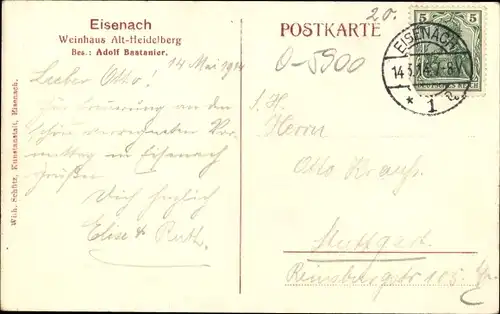 Eisenach
Weinhaus Alt-Heidelberg
Bes.: Adolf Bastanier.
14 Mai 1914
Lieber Otto!
Zur Erinnerung an den
schön verregneten Vor-
mittag in Eisenach
grüßen
Dich herzlich
Elise & Ruth.
Wilh. Schütz, Kunstanstalt, Eisenach.
POSTKARTE
20.
0-5900
5 5
DEUTSCHES REICH
EISENACH
14.5.14. 7-8 V.
* 1
S. H.
Herrn
Otto Krauß.
Stuttgart.
Reinsburgstr 105.